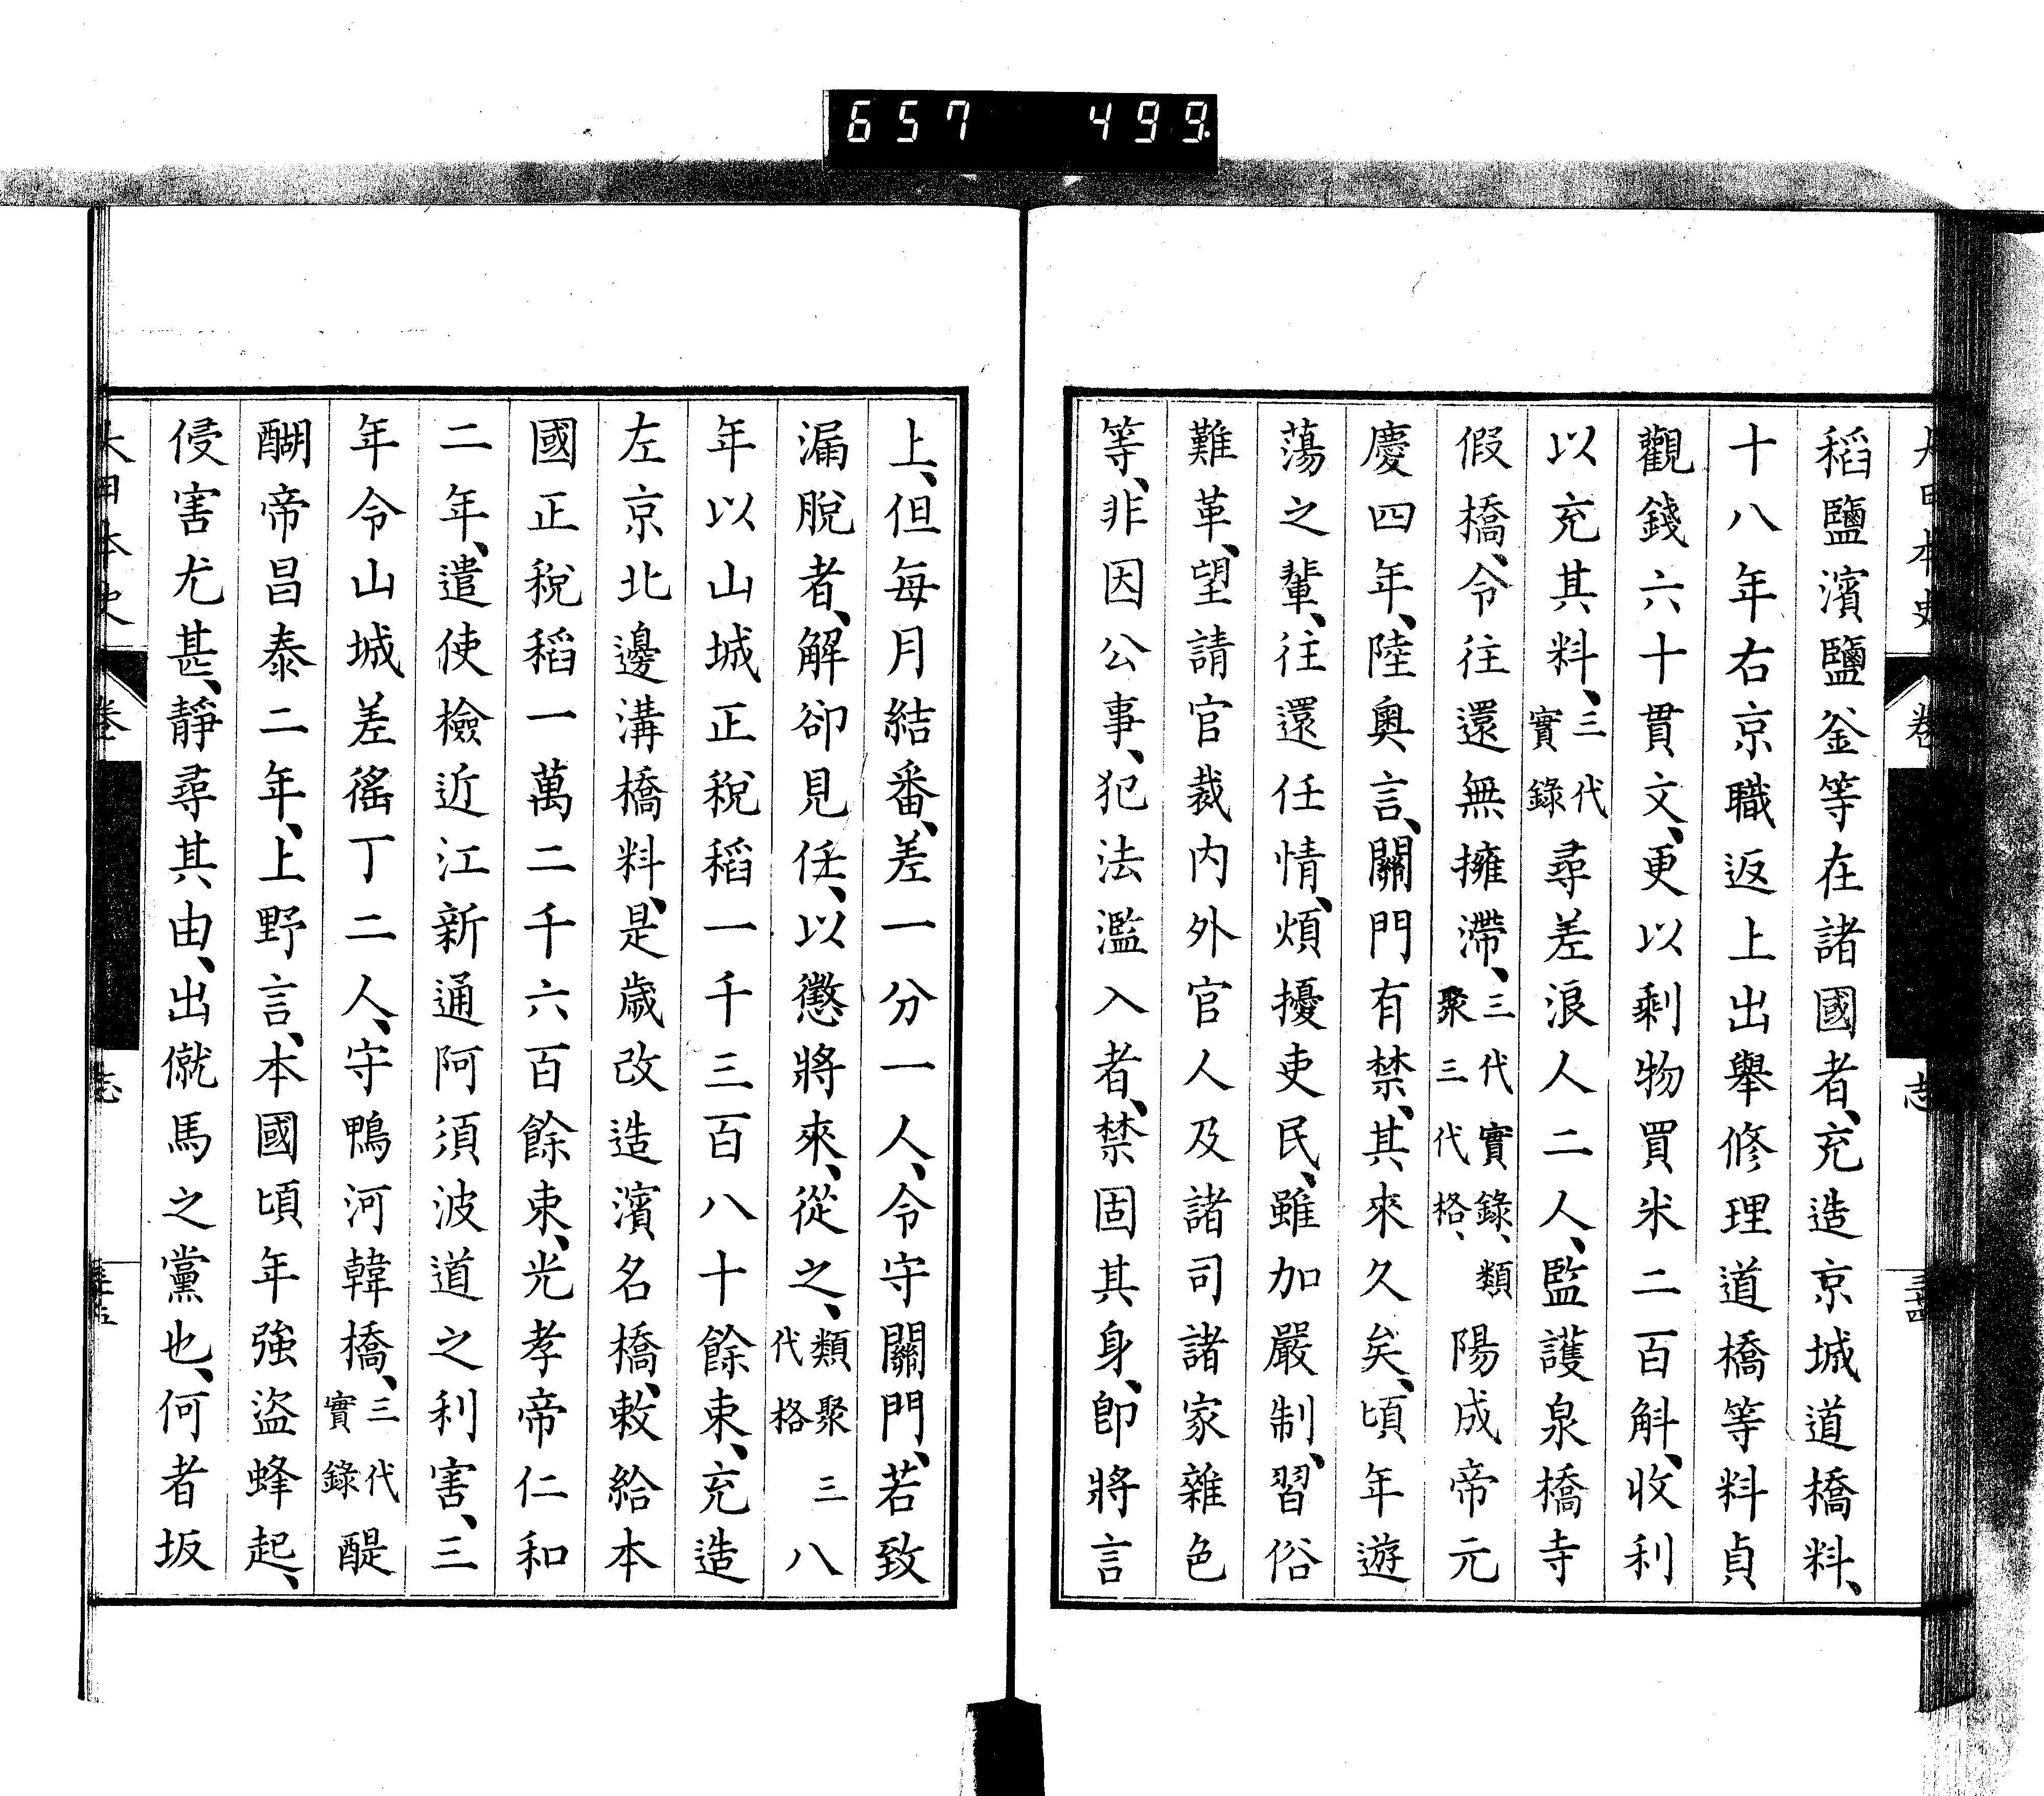 657 499
大日本史 卷 志 三十四
稻鹽濱鹽釜等在諸國者、充造京城道橋料、
十八年右京職返上出舉修理道橋等料貞
觀錢六十貫文、更以剩物買米二百斛、收利
以充其料、三代實錄尋差浪人二人、監護泉橋寺
假橋、令往還無擁滯、三代實錄、類聚三代格、陽成帝元
慶四年、陸奧言、關門有禁、其來久矣、頃年遊
蕩之輩、往還任情、煩擾吏民、雖加嚴制、習俗
難革、望請官裁内外官人及諸司諸家雜色
等、非因公事、犯法濫入者、禁固其身、卽將言
上、但每月結番、差一分一人、令守關門、若致
漏脫者、解卻見任、以懲將來、從之、類聚三代格八
年以山城正稅稻一千三百八十餘束、充造
左京北邊溝橋料、是歲改造濱名橋、敕給本
國正稅稻一萬二千六百餘束、光孝帝仁和
二年、遣使檢近江新通阿須波道之利害、三
年令山城差徭丁二人、守鴨河韓橋、三代實錄醍
醐帝昌泰二年、上野言、本國頃年強盜蜂起、
侵害尤甚、靜尋其由、出僦馬之黨也、何者坂
大日本史 卷 志 三十五